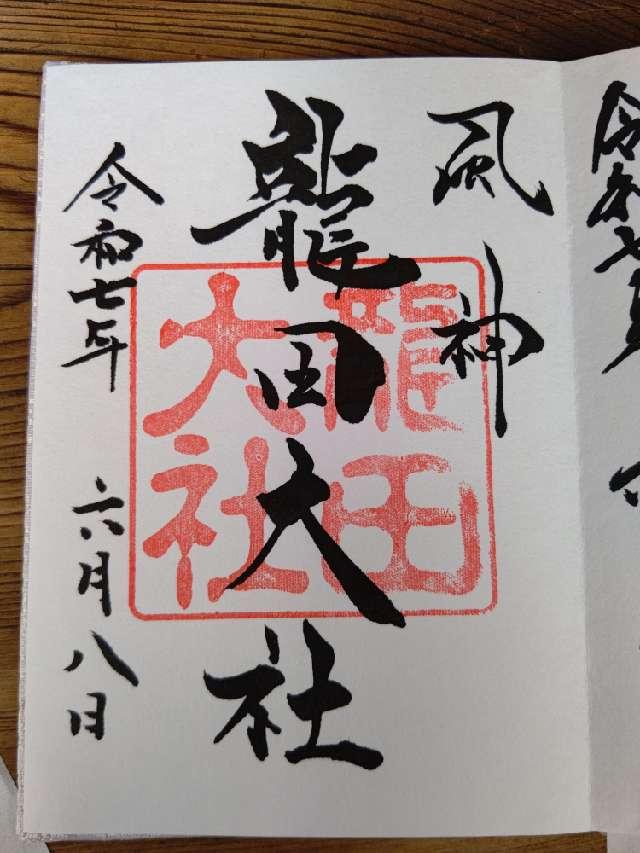 令和七年
風神
龍田大社
龍田大社
令和七年 六月八日